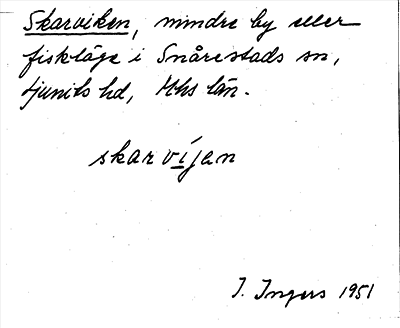 Skarviken, mindre by eller
fiskläge i Snårestads sn,
Ljunits hd, Mhs län.
skarvíjan
I. Ingers 1951